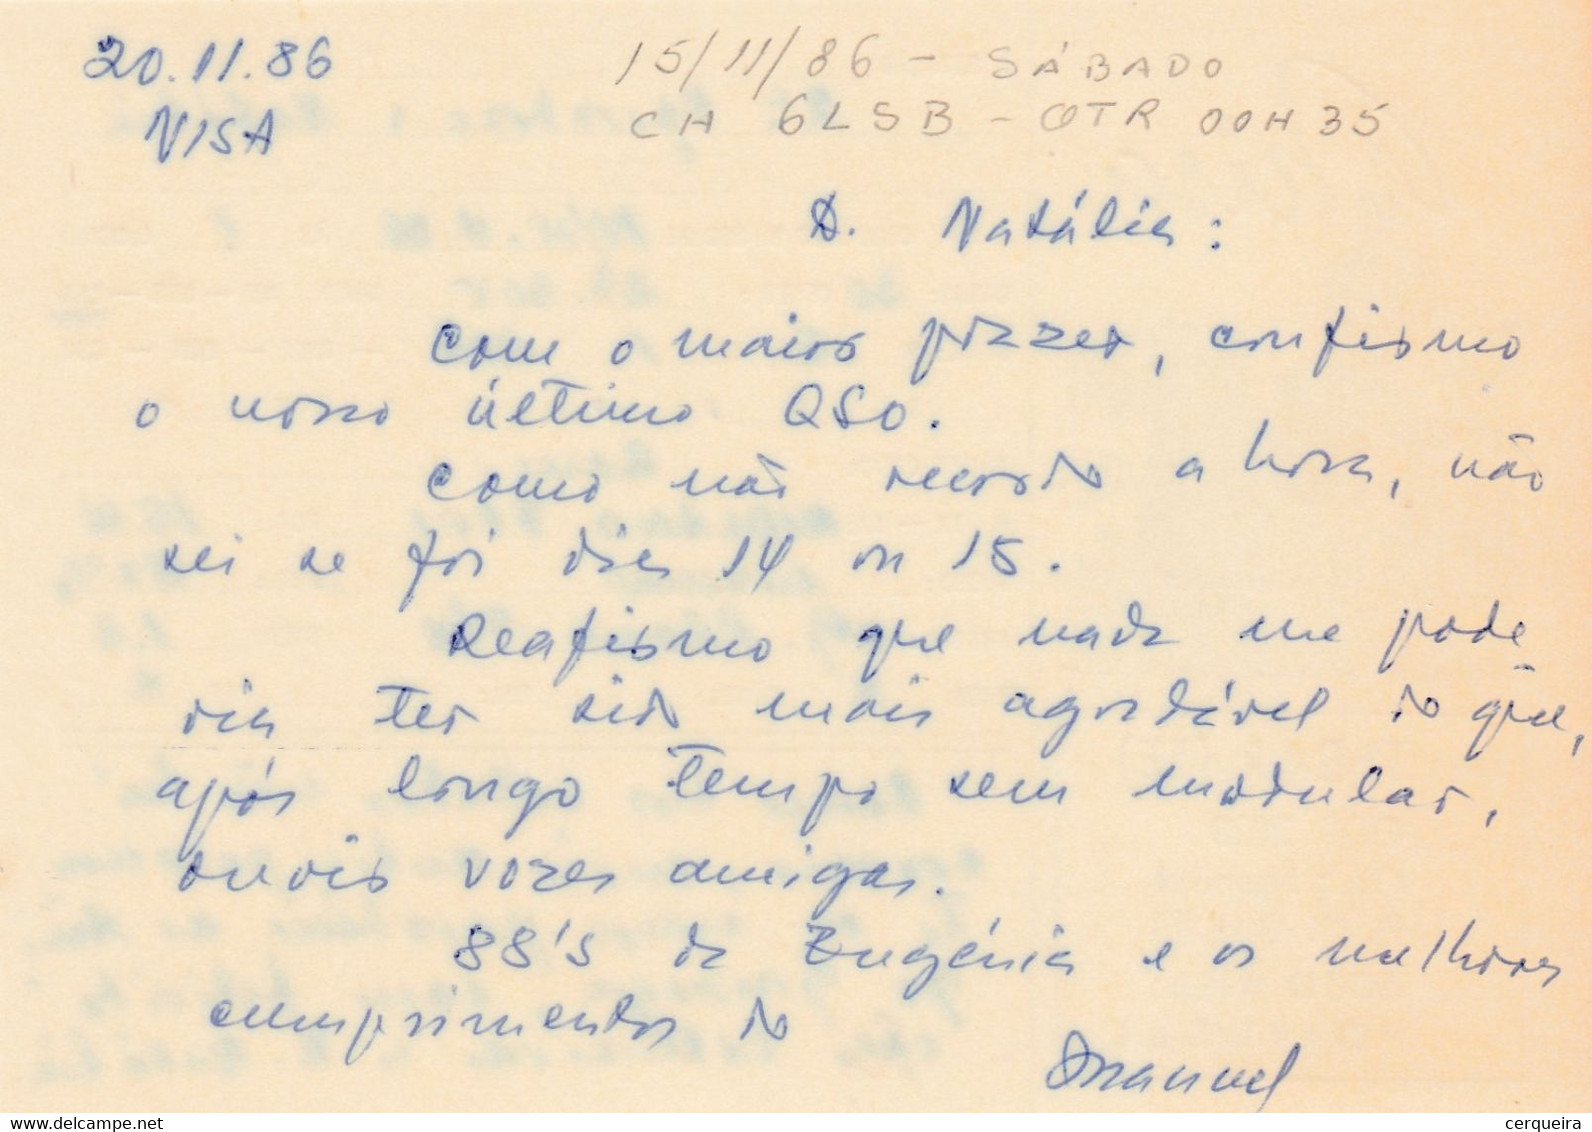 20.11.86
VISA
15/11/86 - SÁBADO
CH 6LSB - QTR 00H35
D. Natália:
Com o maior prazer, confirmo
o nosso último QSO.
Como não recordo a hora, não
sei se foi dia 14 ou 15.
Reafirmo que nada me pode
ria ter sido mais agradável do que,
após longo tempo sem modular,
ouvir vozes amigas.
88's da Eugénia e os melhores
cumprimentos do
Manuel
www.delcampe.net
cerqueira